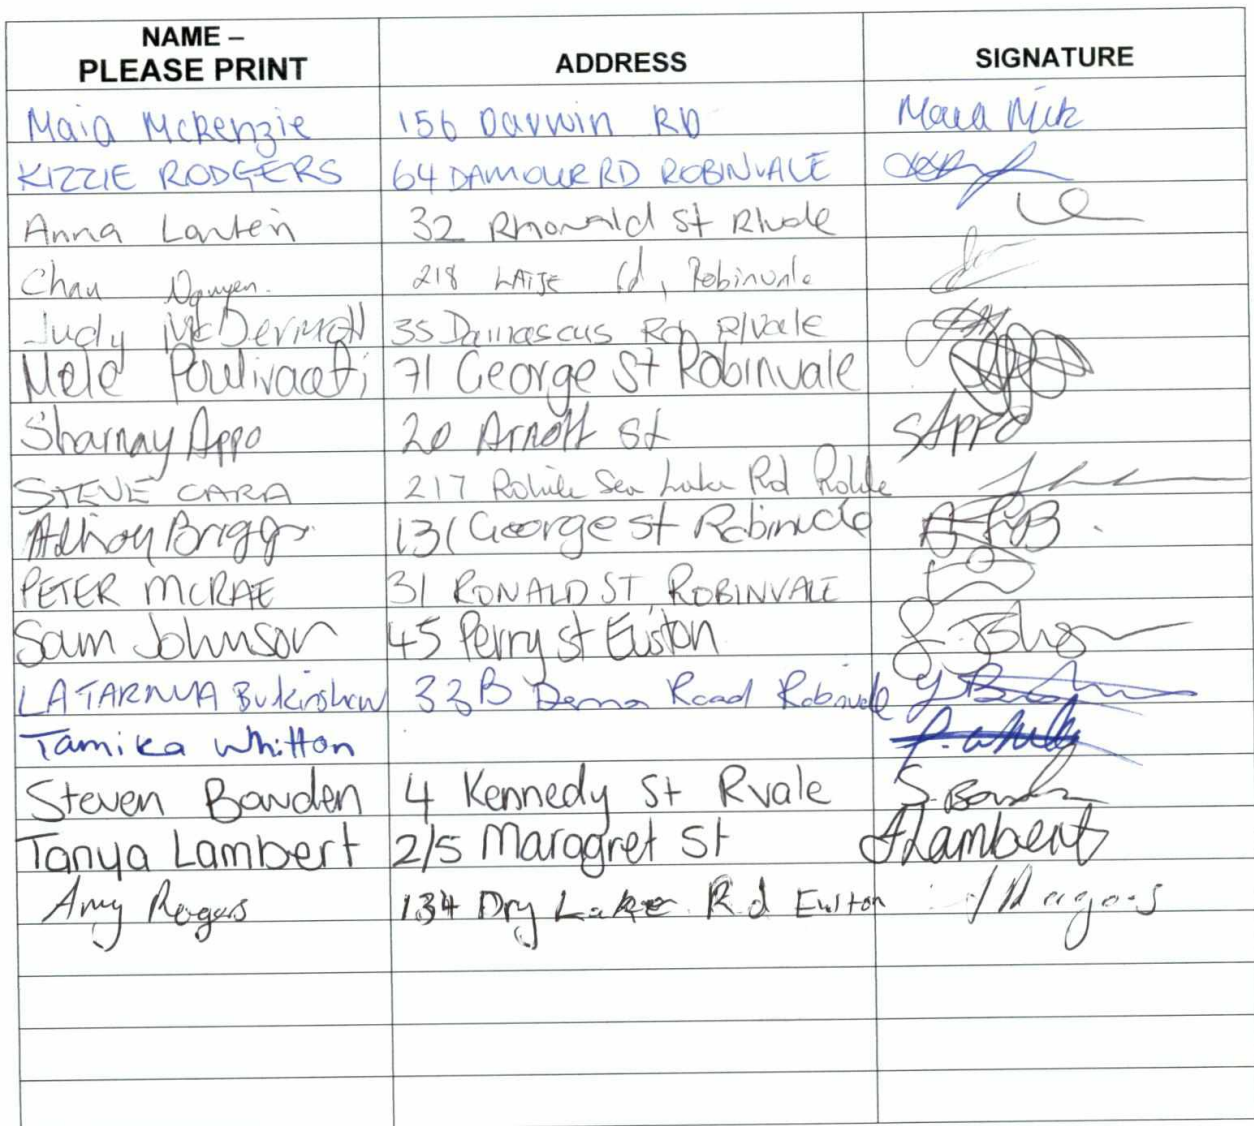 NAME – PLEASE PRINT ADDRESS SIGNATURE
Maia McKenzie 156 Darwin RD Maia Mck
KIZZIE RODGERS 64 DAMOUR RD ROBINVALE
Anna 32 St Rvale
Chau Nguyen. 218 LATJE rd, Robinvale
Judy McDermott 35 Damascus Rob R/Vale
Mele 71 George St Robinvale
Sharnay Appo 20 Arnott st SAppo
STEVE CARA 217 Sea Lake Rd
Briggs 131 George st Robinvale
PETER MCRAE 31 RONALD ST ROBINVALE
Sam Johnson 45 Perry st Euston
LATARNYA 33B Road Robinvale
Tamika Whitton
Steven Bowden 4 Kennedy St Rvale
Tanya Lambert 2/5 Maragret St TLambert
Amy Rogers 134 Dry Lake Rd Euston